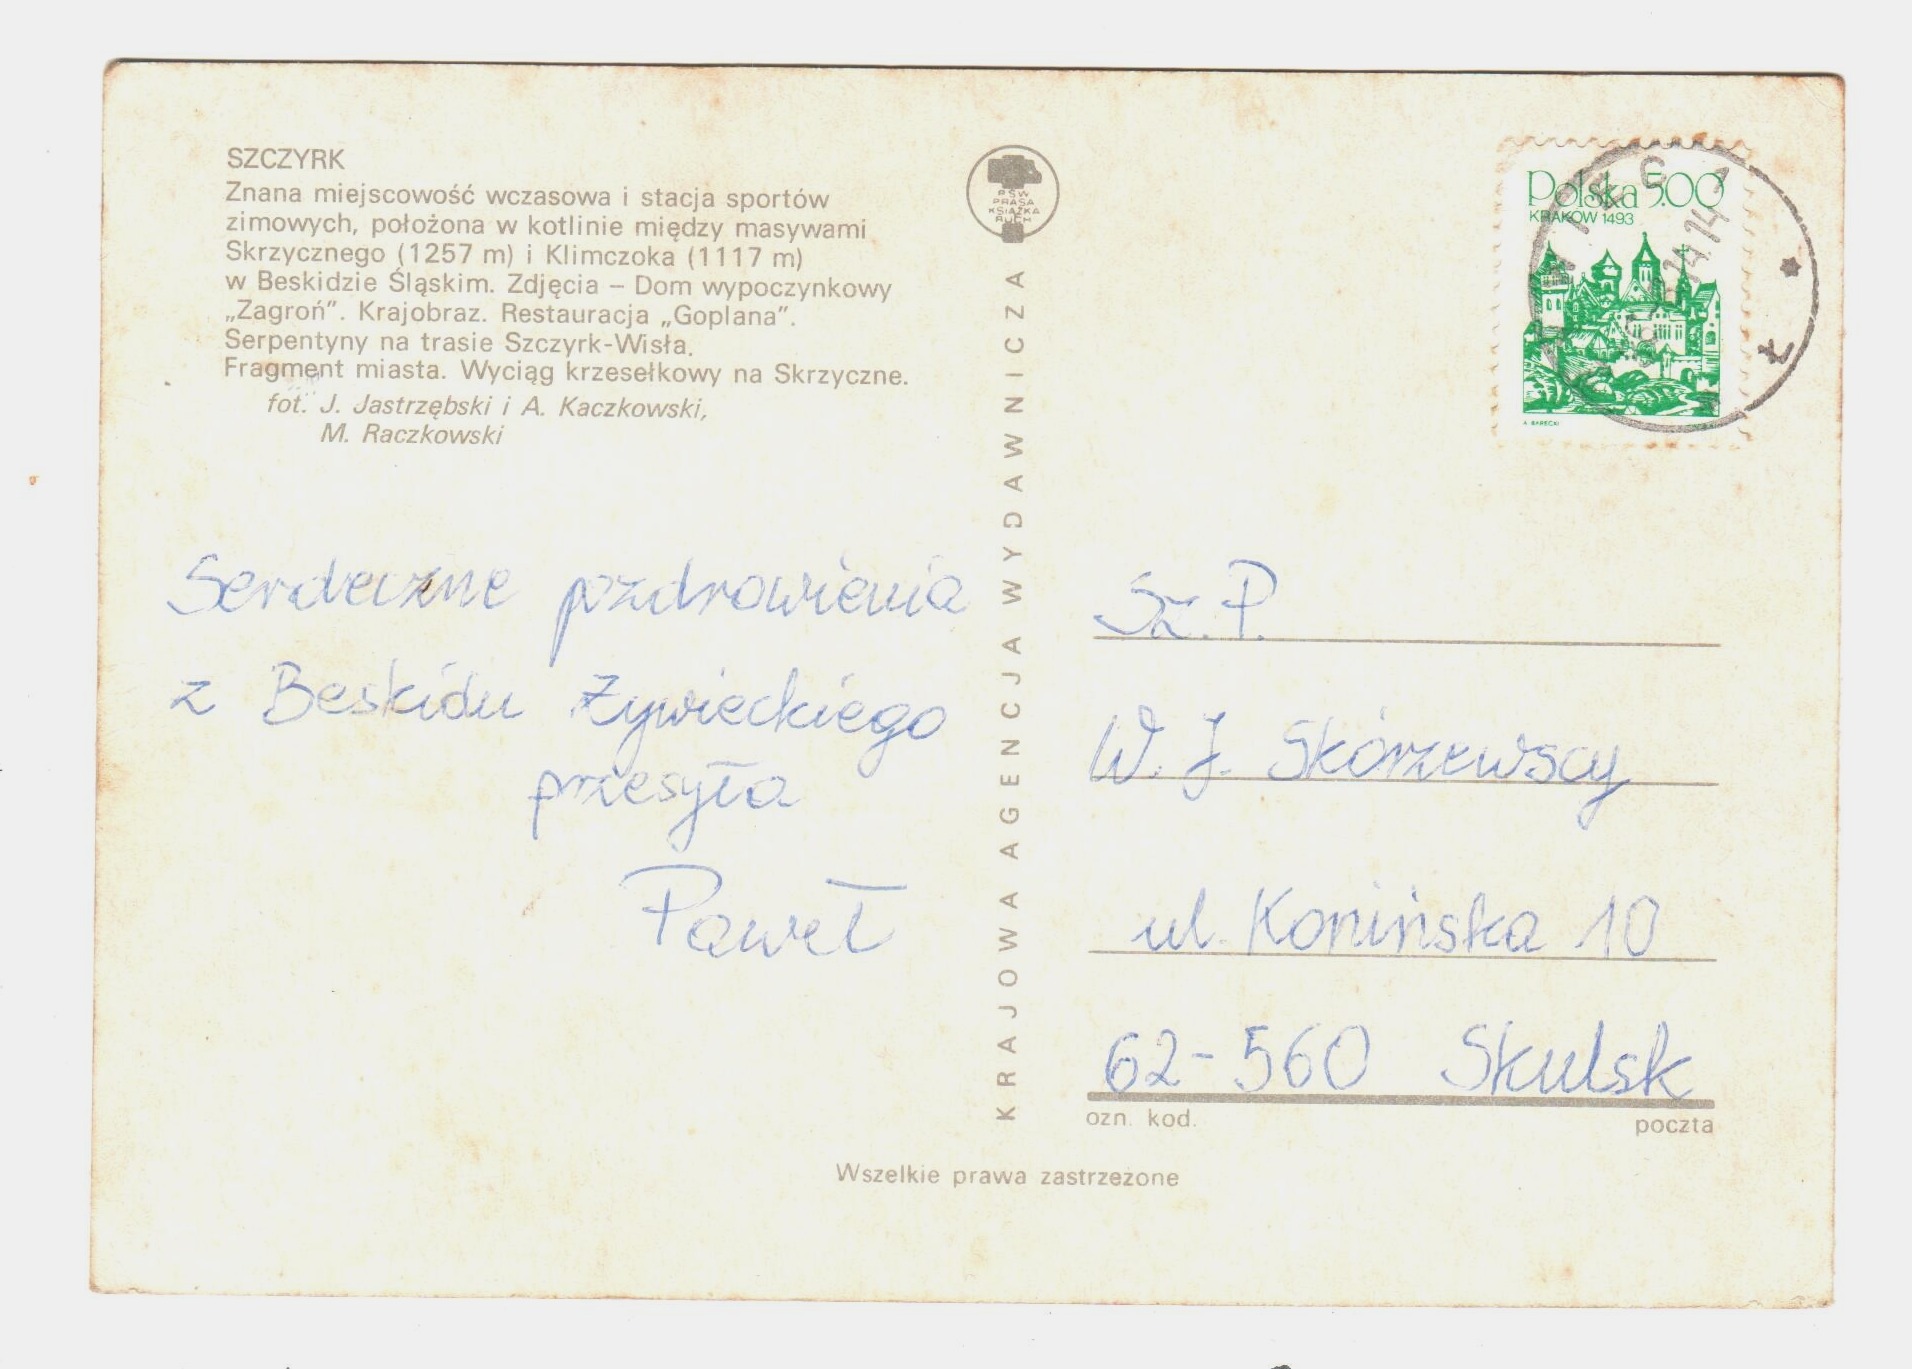 SZCZYRK
Znana miejscowość wczasowa i stacja sportów
zimowych, położona w kotlinie między masywami
Skrzycznego (1257 m) i Klimczoka (1117 m)
w Beskidzie Śląskim. Zdjęcia – Dom wypoczynkowy
„Zagroń”. Krajobraz. Restauracja „Goplana”.
Serpentyny na trasie Szczyrk-Wisła.
Fragment miasta. Wyciąg krzesełkowy na Skrzyczne.
fot. J. Jastrzębski i A. Kaczkowski,
M. Raczkowski
Serdeczne pozdrowienia
z Beskidu Żywieckiego
przesyła
Paweł
PSW
PRASA
KSIĄŻKA
RUCH
KRAJOWA AGENCJA WYDAWNICZA
Polska 5.00
KRAKÓW 1493
Sz. P.
W. J. Skórzewscy
ul. Konińska 10
62-560 Skulsk
ozn. kod. poczta
Wszelkie prawa zastrzeżone